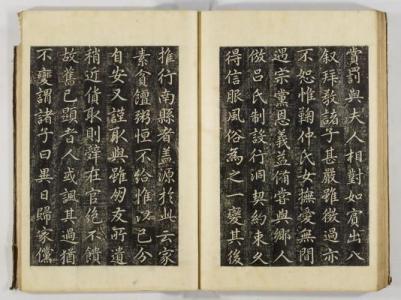 賞罰與夫人相對如賓出入
叙拜敎諸子甚嚴雖微過亦
不恕惟鞠仲氏女撫愛無間
遇宗黨恩義備嘗與鄉人
倣呂氏制設行洞契約束久
得信服風俗爲之一變其後
推行南縣者蓋源於此云家
素貧饘粥恒不給惟以己分
自安又謹取與雖友所遺
稍近貨取則辭在官絶不饋
故舊已顯者人或諷其過猶
不變謂諸子曰異日歸家儻